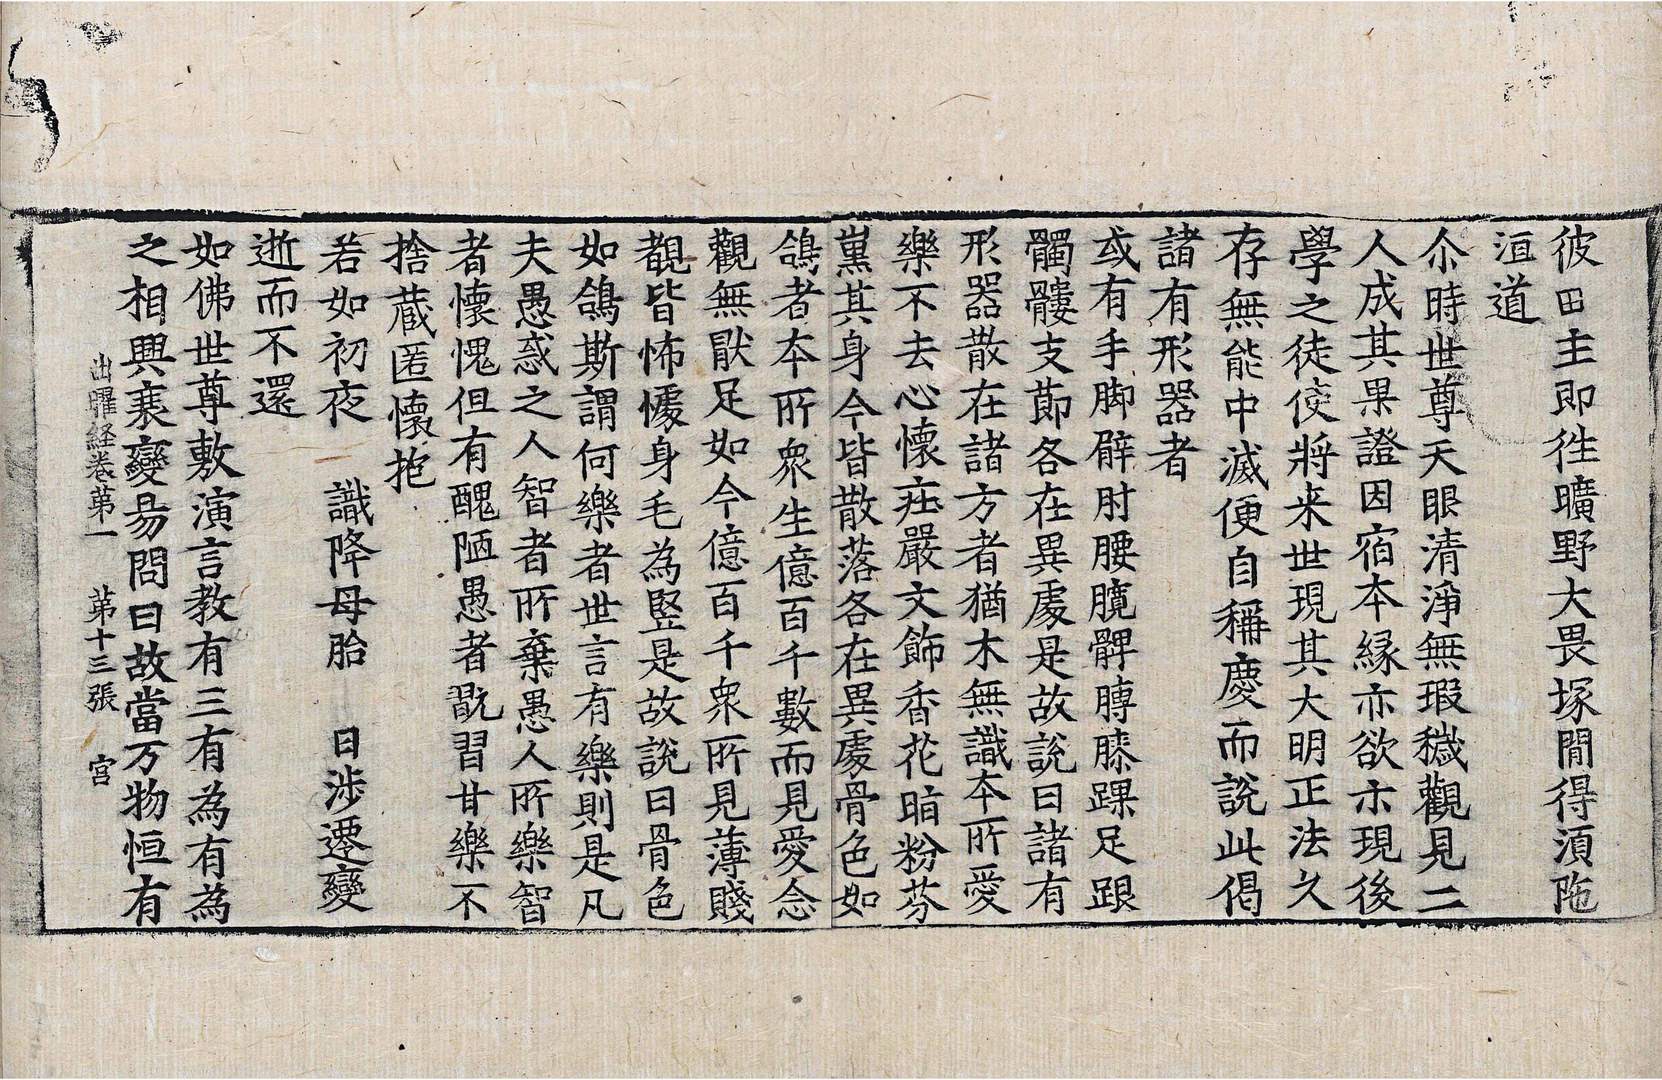 彼田主即徃曠野大畏塚間得須陁
洹道
尒時世尊天眼清淨無瑕穢觀見二
人成其果證因宿本緣亦欲示現後
學之徒使將来世現其大明正法久
存無能中滅便自稱慶而說此偈
諸有形器者
或有手脚臂肘腰髖髀膞膝踝足跟
髑髏支莭各在異處是故說曰諸有
形器散在諸方者猶木無識本所愛
樂不去心懷疰嚴文飾香花脂粉芬
薰其身今皆散落各在異處骨色如
鴿者本所衆生億百千數而見愛念
觀無猒足如今億百千衆所見薄賤
覩皆怖懅身毛為竪是故說曰骨色
如鴿斯謂何樂者世言有樂則是凡
夫愚惑之人智者所棄愚人所樂智
者懷愧但有醜陋愚者翫習甘樂不
捨蔵匿懷抱
若如初夜　識降母胎　日涉遷變
逝而不還
如佛世尊敷演言教有三有為有為
之相興衰變易問曰故當万物恒有
出曜経卷苐一　苐十三張　宮